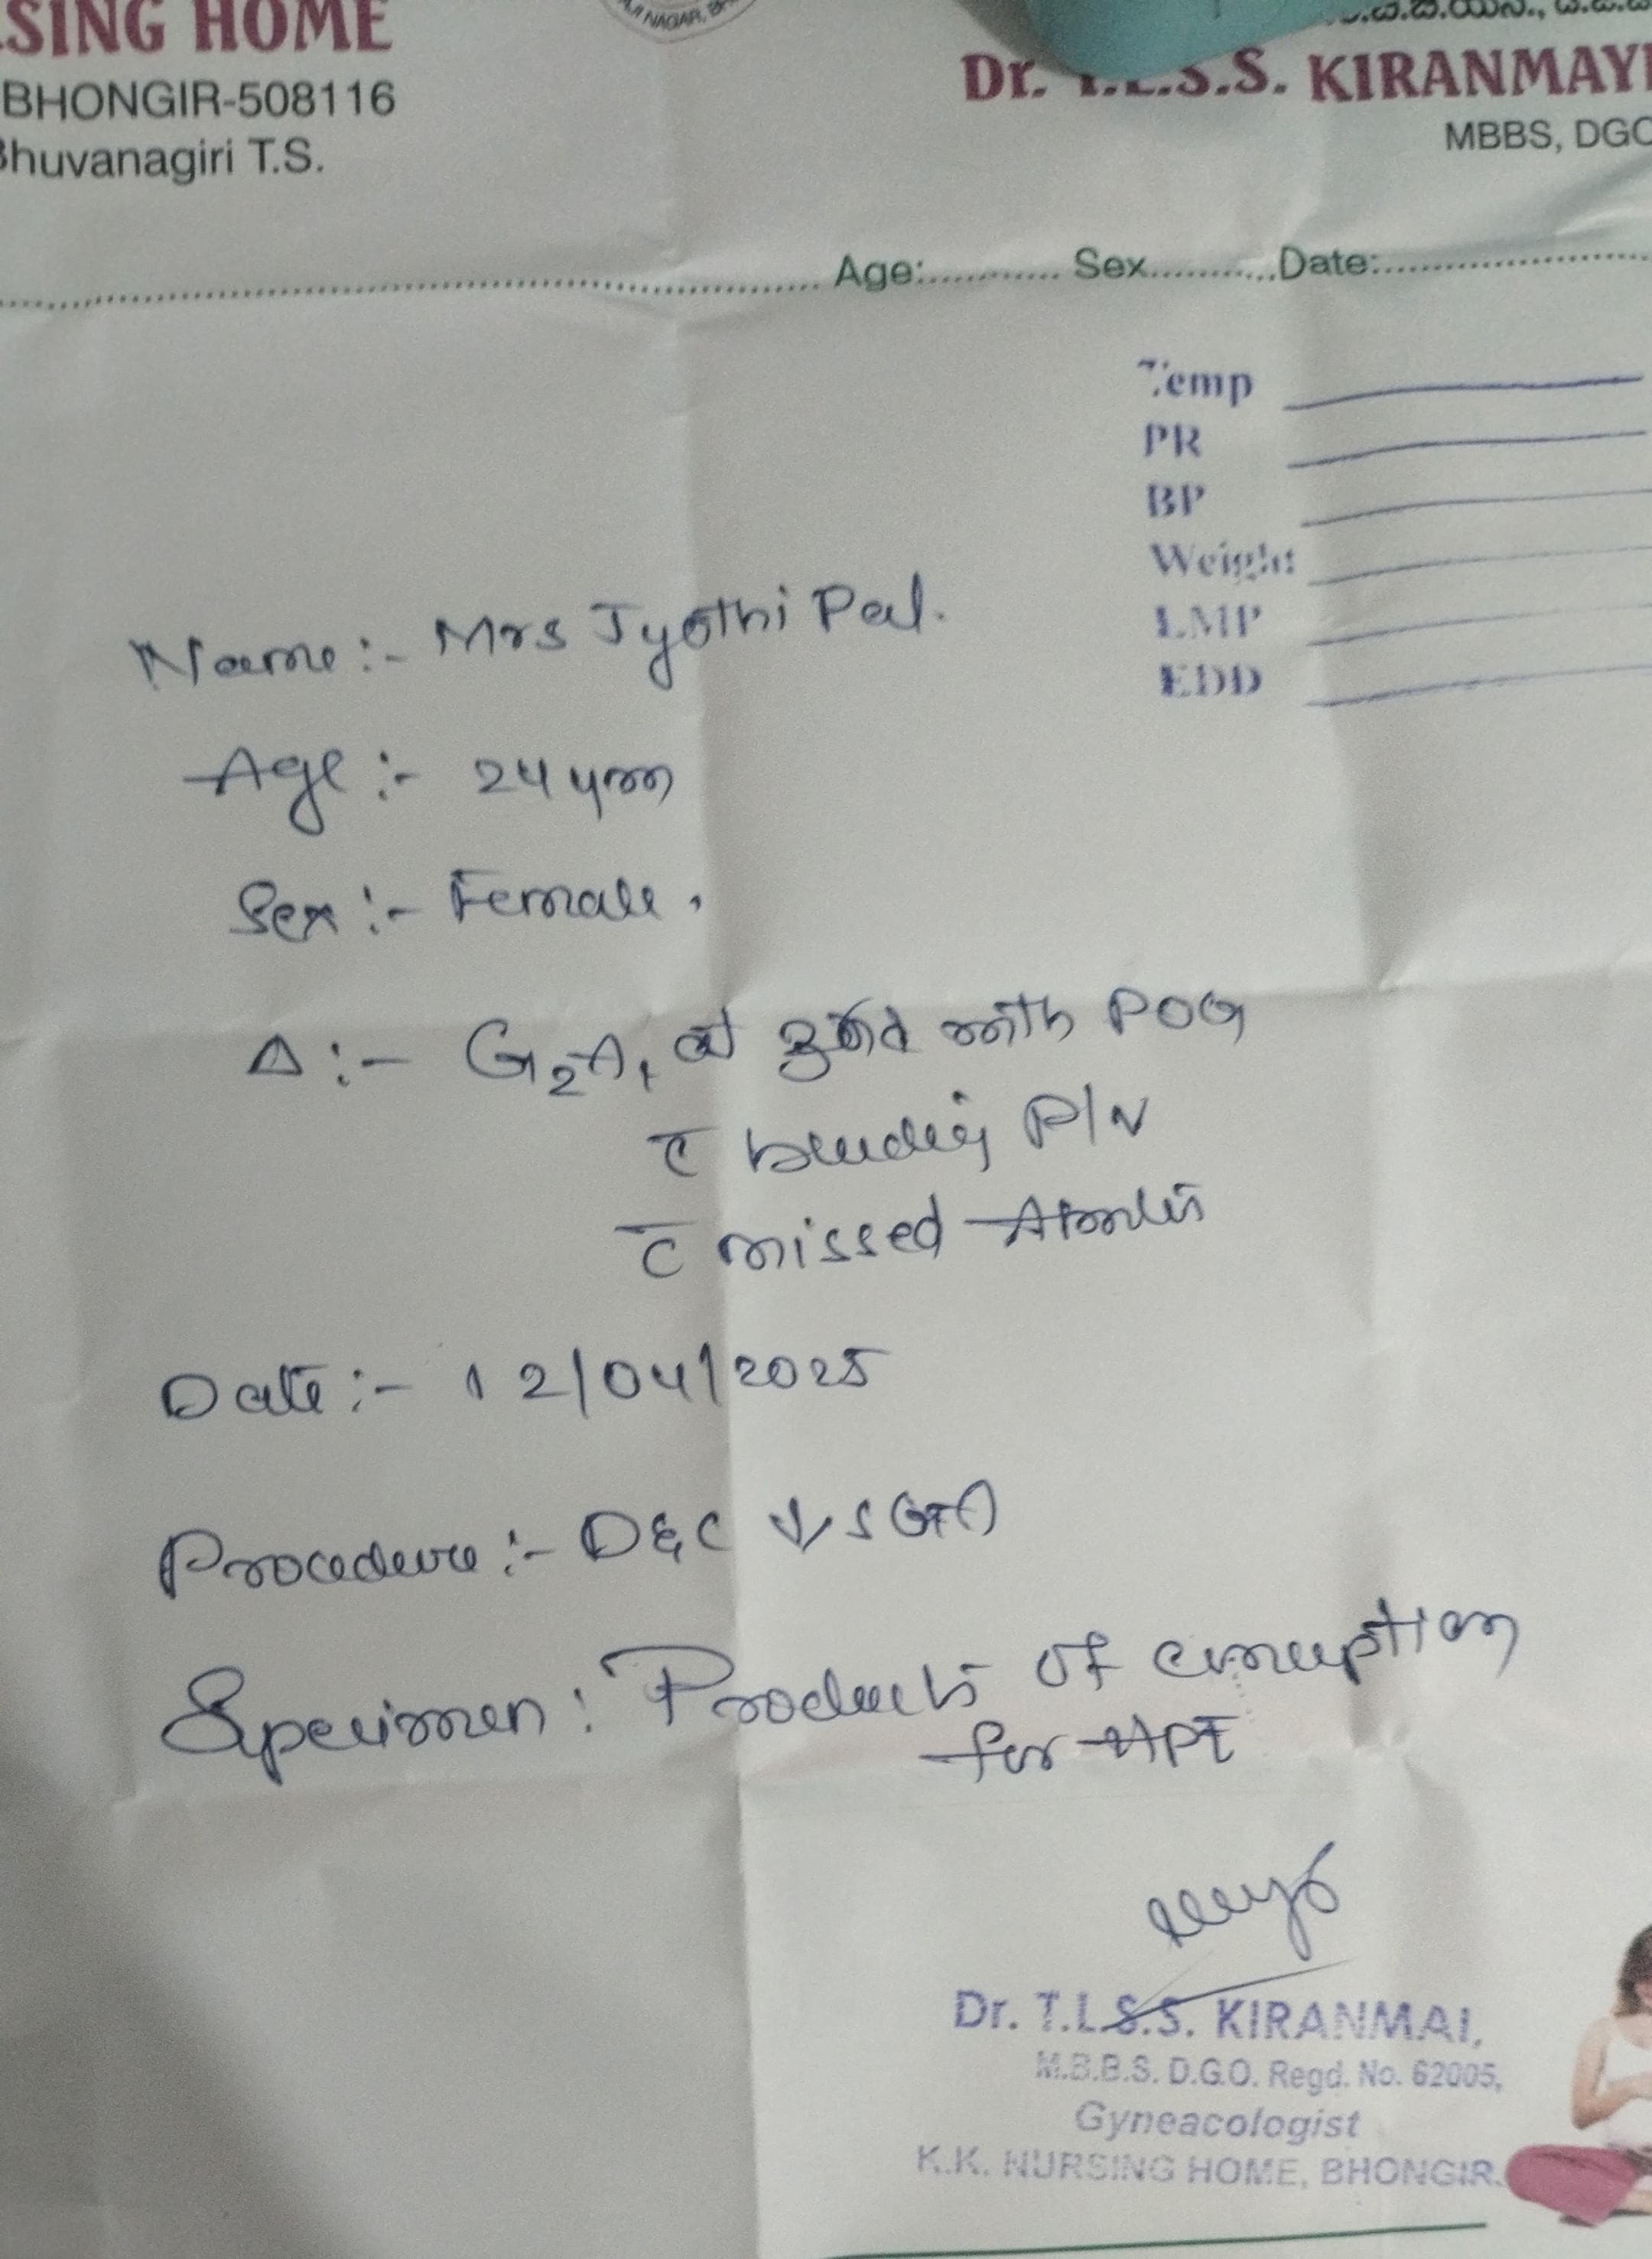 SING HOME
BHONGIR-508116
Bhuvanagiri T.S.
NAGAR,
Dr. T.L.S.S. KIRANMAYI
MBBS, DGO
Age:........... Sex...........Date:....................
Temp
PR
BP
Weight
LMP
EDD
Name :- Mrs Jyothi Pal.
Age :- 24 yrs
Sex :- Female.
Δ :- G2A1 at 3rd mth POG
c̄ bleeding P/V
c̄ missed Abortion
Date :- 12/04/2025
Procedure :- D&C ↓ SGA
Specimen : Products of conception
for HPE
Dr. T.L.S.S. KIRANMAI,
M.B.B.S. D.G.O. Regd. No. 62005,
Gyneacologist
K.K. NURSING HOME, BHONGIR.